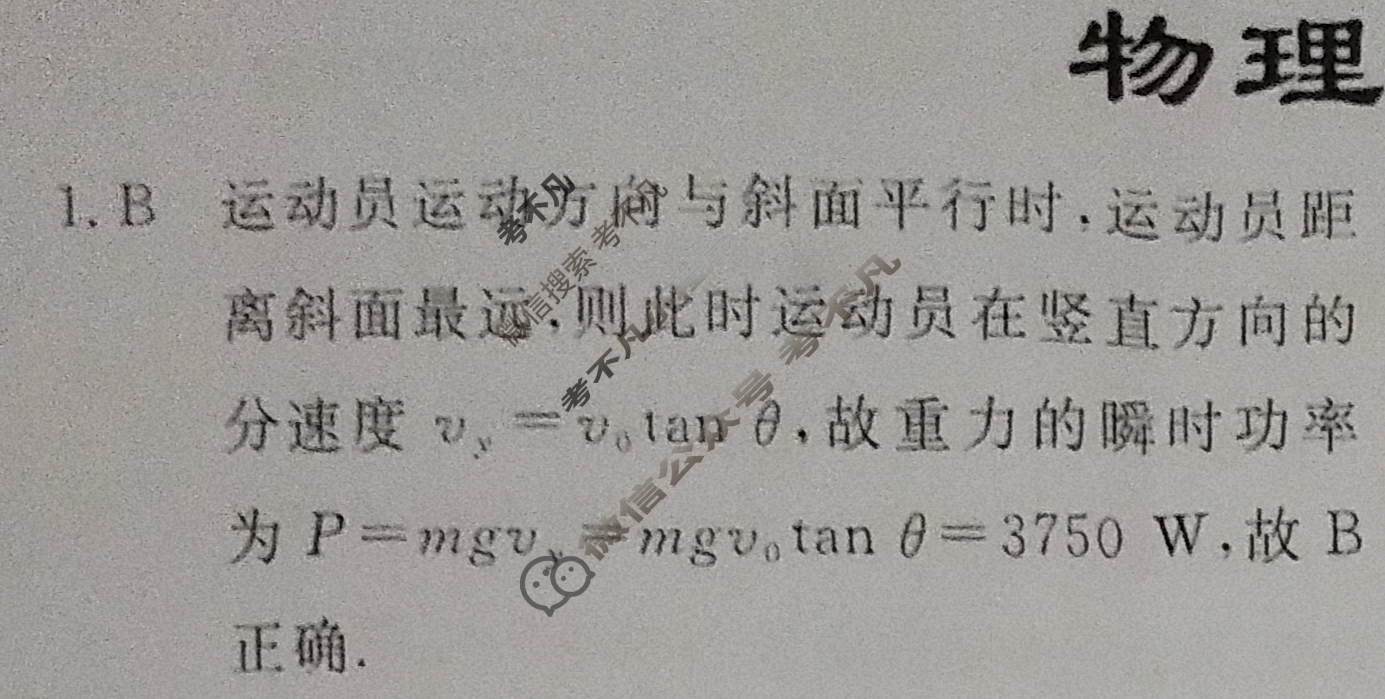 物理
1. B 运动员运动方向与斜面平行时,运动员距
离斜面最远,则此时运动员在竖直方向的
分速度 v_y=v_0 tan θ,故重力的瞬时功率
为 P=mgv_y=mgv_0 tan θ=3750 W,故 B
正确.
考不凡
微信搜索 考不凡
考不凡
微信公众号 考不凡